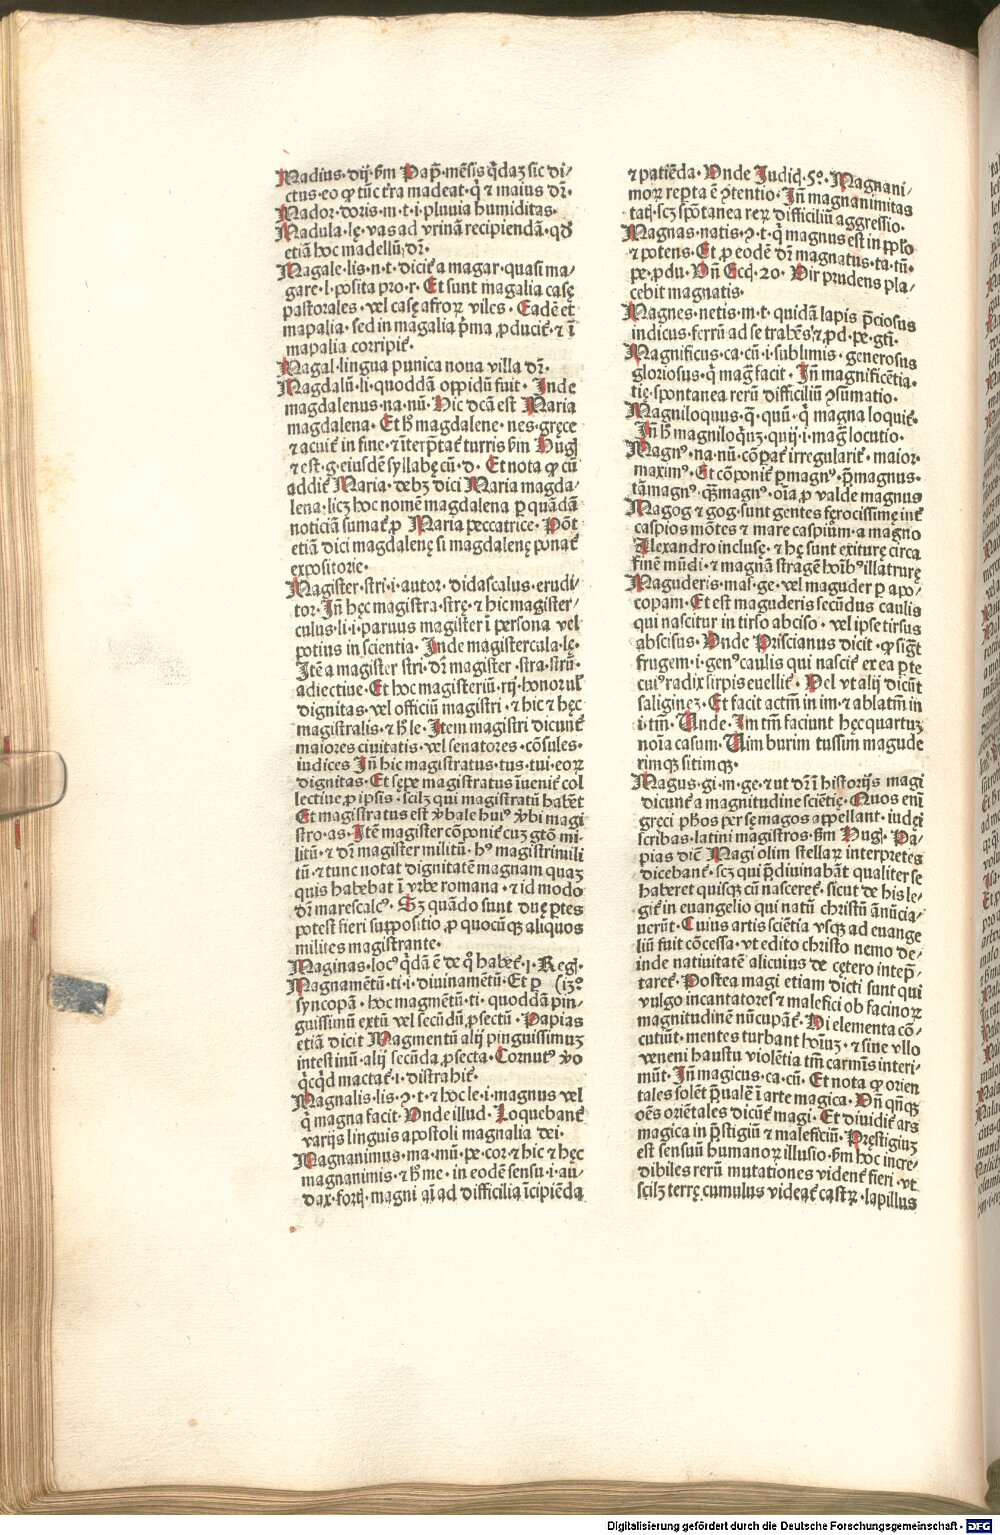 Madius·dij·ẜm Pap̄·mēsis q̇daȝ sic di/
ctus·eo ꝙ tūc t̄ra madeat·q̇ ⁊ maius dr̄·
Mador·doris·m·t·i·pluuia humiditas·
Madula·lę·vas ad vrinā recipiendā·qđ
etiā hoc madellū dr̄·
Magale·lis·n·t·dicit᷑ a magar·quasi ma/
gare·l·posita pro·r·Et sunt magalia casę
pastorales·vel casę afroꝝ viles·Eadē et
mapalia·sed in magalia p̄ma ꝓducit᷑·⁊ ī
mapalia corripit᷑·
Magal·lingua punica noua villa dr̄·
Magdalū·li·quoddā oppidū fuit·Inde
magdalenus·na·nū·Hic dc̄a est Maria
magdalena·Et ħ magdalene·nes·gręce
⁊ acuit᷑ in fine·⁊ īterp̄tat᷑ turris ẜm Hug̃
⁊ est·g·eiusdē syllabę cū·d·Et nota ꝙ cū
addit᷑ Maria·debȝ dici Maria magda/
lena·licȝ hoc nomē magdalena ꝑ quādā
noticiā sumat᷑ ꝓ Maria peccatrice·Pōt
etiā dici magdalenę si magdalenę ponat᷑
expositorie·
Magister·stri·i·autor·didascalus·erudi/
tor·Iñ hęc magistra·strę·⁊ hic magister/
culus·li·i·paruus magister ī persona vel
potius in scientia·Inde magistercula·lę·
Itē a magister stri·dr̄ magister·stra·strū·
adiectiue·Et hoc magisteriū·rij·honor ul̄
dignitas·vel officiū magistri·⁊ hic ⁊ hęc
magistralis·⁊ ħ le·Item magistri dicunt᷑
maiores ciuitatis·vel senatores·cōsules·
iudices Iñ hic magistratus·tus·tui·eoꝝ
dignitas·Et sępe magistratus īuenit᷑ col
lectiue ꝓ ipsis·scilȝ qui magistratū habēt
Et magistratus est v̄bale huiꝰ v̄bi magi
stro·as·Itē magister cōponit᷑ cuȝ gtō mi/
litū·⁊ dr̄ magister militū·hꝰ magistrimili
tū·⁊ tunc notat dignitatē magnam quaȝ
quis habebat ī vrbe romana·⁊ id modo
dr̄ marescalcꝰ·Sȝ quādo sunt duę ꝑtes
potest fieri suppositio ꝓ quocūqȝ aliquos
milites magistrante·
Maginas·locꝰ q̇dā ē de q̊ habet᷑·i·Reg̃·
Magnamētū·ti·i·diuinamētū·Et ꝑ (13°
syncopā·hoc magmētū·ti·quoddā pin/
guissimū extū vel secūdū ꝓsectū·Papias
etiā dicit Magmentū alij pinguissimuȝ
intestinū·alij secūda ꝓsecta·Cornutꝰ v̊o
q̇cq̇d mactat᷑·i·distrahit᷑·
Magnalis·lis·ꝯ·t·⁊ hoc le·i·magnus vel
q̇ magna facit·Vnde illud·Loquebant᷑
varijs linguis apostoli magnalia dei·
Magnanimus·ma·mū·pe·cor·⁊ hic ⁊ hęc
magnanimis·⁊ ħ me·in eodē sensu·i·au/
dax·fortj·magni aī ad difficilia īcipiēda
⁊ patiēda·Vnde Judiq̄·5°·Magnani/
moꝝ reꝑta ē ꝯtentio·Iñ magnanimitas
tatj·scȝ spōtanea reꝝ difficiliū aggressio·
Magnas·natis·ꝯ·t·q̇ magnus est in pplo
⁊ potens·Et ꝓ eodē dr̄ magnatus·ta·tū·
pe·ꝓdu·Vñ Eccj·20·Vir prudens pla/
cebit magnatis·
Magnes·netis·m·t·quidā lapis p̄ciosus
indicus·ferrū ad se trahēs·⁊ ꝓd·pe·gtī·
Magnificus·ca·cū·i·sublimis·generosus
gloriosus·q̇ mag̃ facit·Iñ magnificētia·
tię·spontanea rerū difficiliū ꝯsumatio·
Magniloquus·q̄·quū·q̇ magna loquit᷑·
Iñ ħ magniloq̇uȝ·quij·i·mag̃ locutio·
Magnꝰ·na·nū·cōpat᷑ irregularit᷑·maior·
maximꝰ·Et cōponit᷑ ꝑmagnꝰ·p̄magnus·
tāmagnꝰ·q̄ȝmagnꝰ·oīa ꝓ valde magnus
Magog ⁊ gog·sunt gentes ferocissimę int᷑
caspios mōtes ⁊ mare caspium·a magno
Alexandro inclusę·⁊ hę sunt exiturę circa
finē mūdi·⁊ magnā stragē hoībꝰ illaturę
Maguderis·mas·ge·vel maguder ꝑ apo/
copam·Et est maguderis secūdus caulis
qui nascitur in tirso abciso·vel ipse tirsus
abscisus·Vnde Priscianus dicit·ꝙ sigt̄
frugem·i·genꝰ caulis qui nascit᷑ ex ea ꝑte
cuiꝰ radix sirpis euellit᷑·Vel vt alij dicūt
saliginez·Et facit actm̄ in im·⁊ ablatm̄ in
i·tm̄·Vnde·Im tm̄ faciunt hęc quartuȝ
noīa casum·Vim burim tussim magude
rimqȝ sitimqȝ·
Magus·gi·m·ge·⁊ ut dr̄ ī historijs magi
dicunt᷑ a magnitudine sciētię·Quos enī
gręci phos per sę magos appellant·iudęi
scribas·latini magistros·ẜm Hug̃·Pa/
pias dic̄ Magi olim stellaꝝ interpretes
dicebant᷑·scȝ qui p̄diuinabāt qualiter se
haberet quisqȝ cū nasceret᷑·sicut de his le/
git᷑ in euangelio qui natū christū ānūcia/
uerūt·Cuius artis sciētia vsqȝ ad euange
liū fuit cōcessa·vt edito christo nemo de/
inde natiuitatē alicuius de cętero intep̄/
taret᷑·Postea magi etiam dicti sunt qui
vulgo incantatores ⁊ malefici ob facinoꝝ
magnitudinē nūcupāt᷑·Hi elementa cō/
cutiūt·mentes turbant hoīuȝ·⁊ sine vllo
veneni haustu violētia tm̄ carmīs interi/
mūt·Iñ magicus·ca·cū·Et nota ꝙ orien
tales solēt p̄ualē ī arte magica·Vñ qñqȝ
oēs oriētales dicūt᷑ magi·Et diuidit᷑ ars
magica in p̄stigiū ⁊ maleficiū·Pręstigiuȝ
est sensuū humanoꝝ illusio·ẜm hoc incre/
dibiles rerū mutationes vident᷑ fieri·vt
scilȝ terrę cumulus videat᷑ castꝝ·lapillus
Digitalisierung gefördert durch die Deutsche Forschungsgemeinschaft - DFG